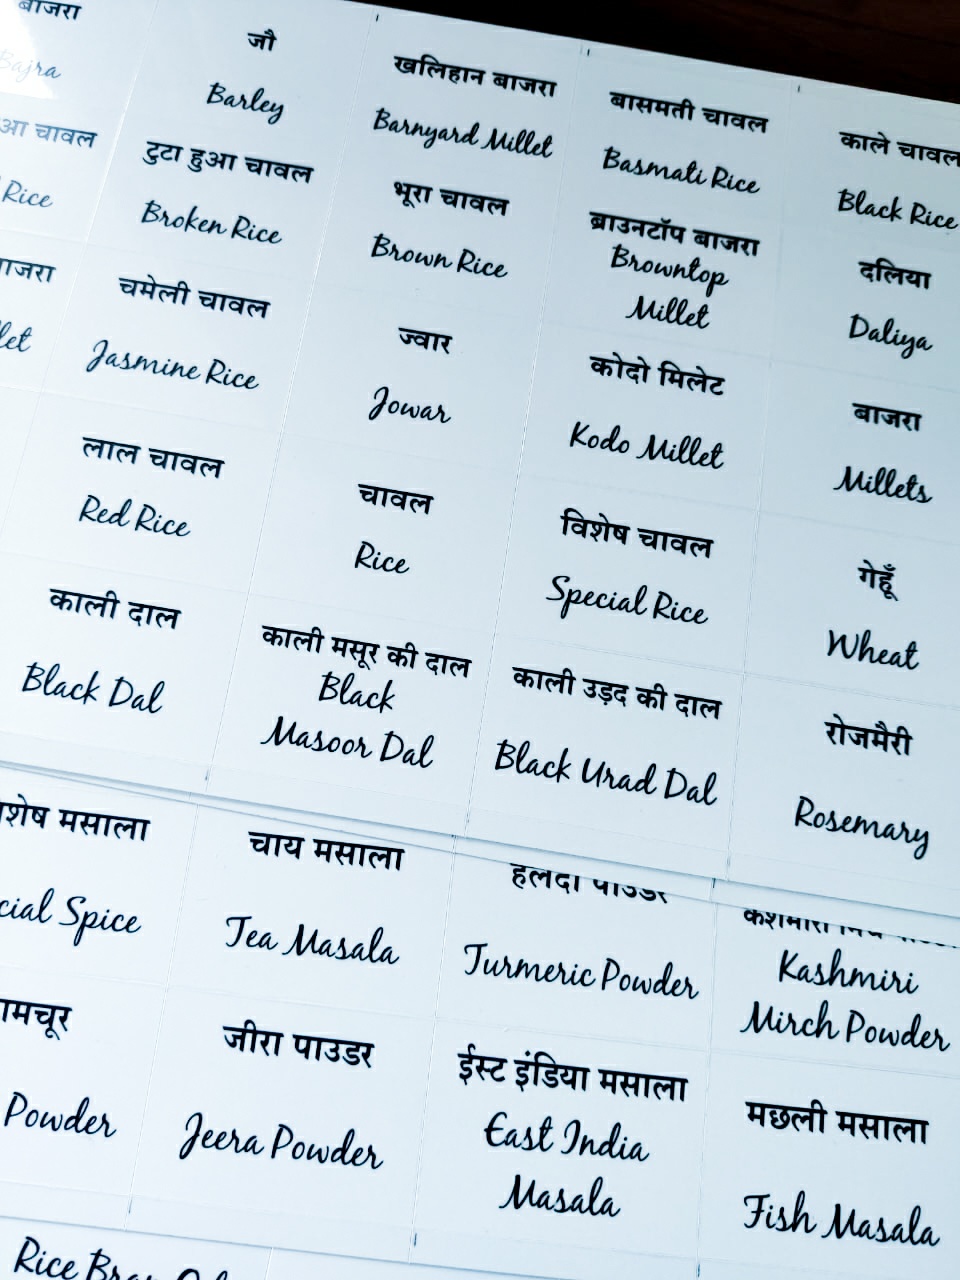 बाजरा
Bajra
जौ
Barley
खलिहान बाजरा
Barnyard Millet
बासमती चावल
Basmati Rice
काले चावल
Black Rice
चावल
Rice
टुटा हुआ चावल
Broken Rice
भूरा चावल
Brown Rice
ब्राउनटॉप बाजरा
Browntop
Millet
दलिया
Daliya
चमेली चावल
Jasmine Rice
ज्वार
Jowar
कोदो मिलेट
Kodo Millet
बाजरा
Millets
लाल चावल
Red Rice
चावल
Rice
विशेष चावल
Special Rice
गेहूँ
Wheat
काली दाल
Black Dal
काली मसूर की दाल
Black
Masoor Dal
काली उड़द की दाल
Black Urad Dal
रोजमैरी
Rosemary
मसाला
Spice
चाय मसाला
Tea Masala
हलदी पाउडर
Turmeric Powder
Kashmiri
Mirch Powder
Powder
जीरा पाउडर
Jeera Powder
ईस्ट इंडिया मसाला
East India
Masala
मछली मसाला
Fish Masala
Rice Bran